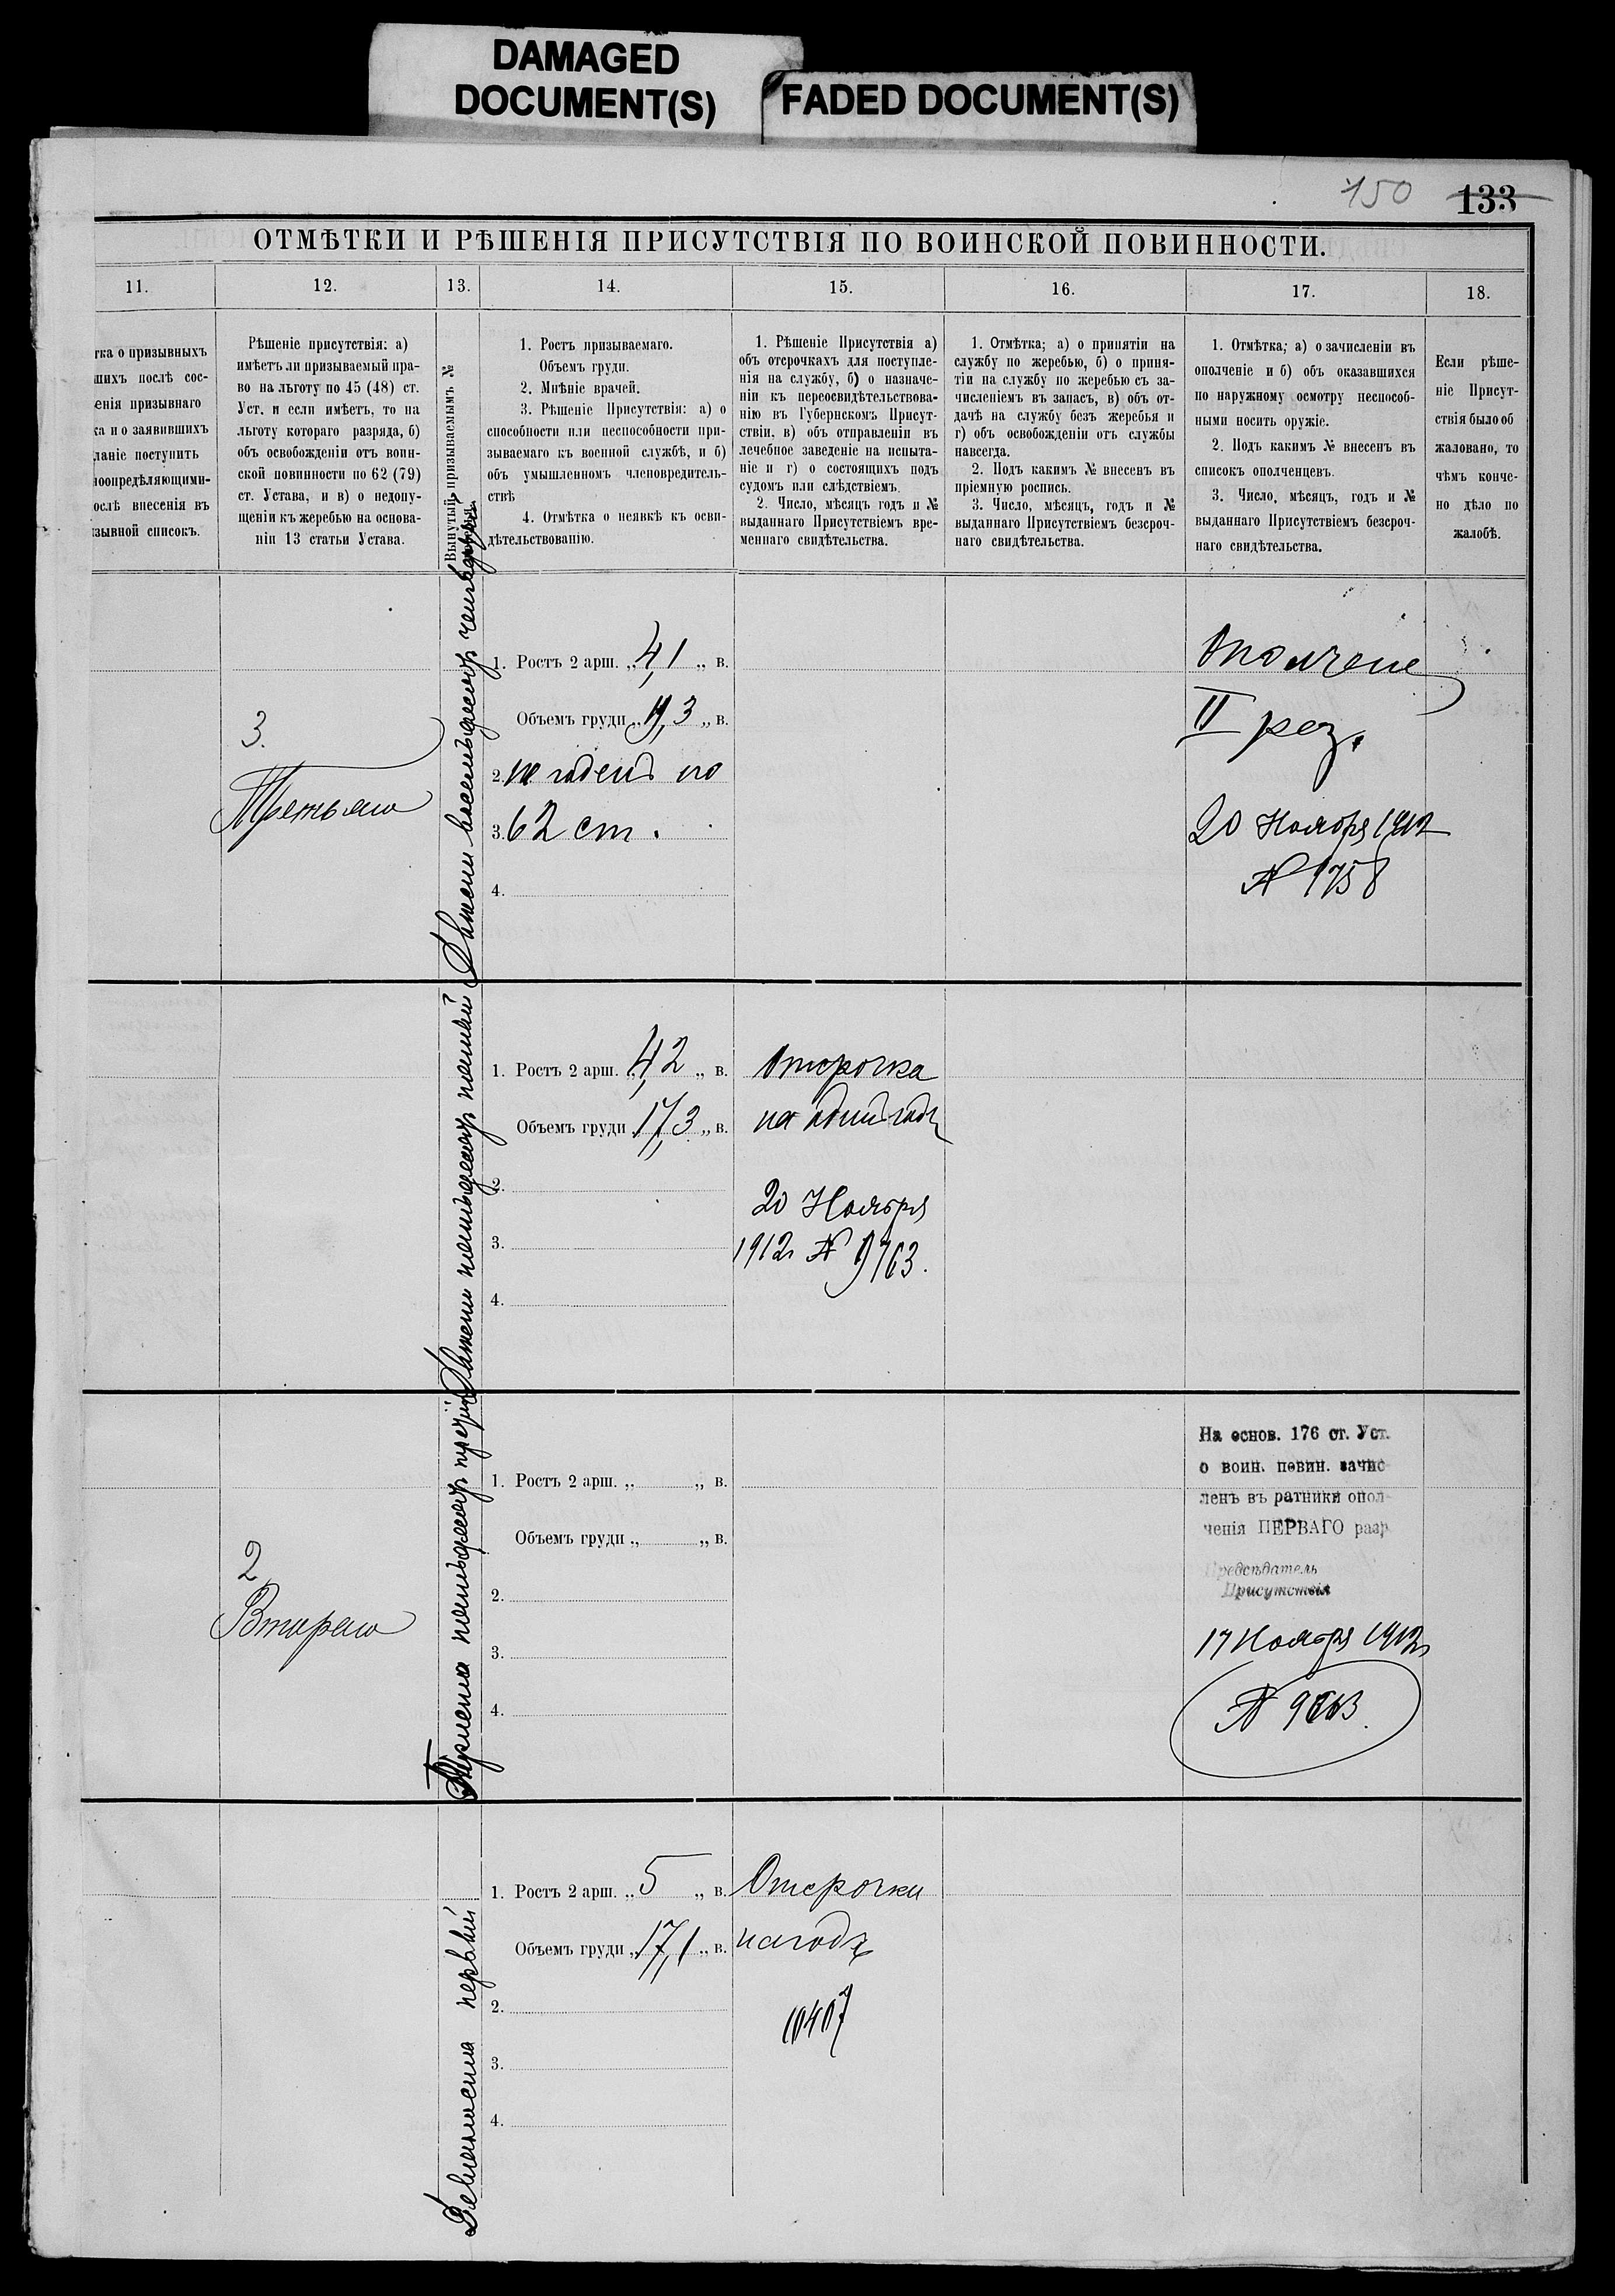 DAMAGED
DOCUMENT(S)
FADED DOCUMENT(S)
150 133
ОТМѢТКИ И РѢШЕНІЯ ПРИСУТСТВІЯ ПО ВОИНСКОЙ ПОВИННОСТИ.
11. 12. 13. 14. 15. 16. 17. 18.
тка о призывныхъ
шихъ послѣ сос-
енія призывнаго
ка и о заявившихъ
ланіе поступить
ноопредѣляющими-
ослѣ внесенія въ
зывной списокъ.
Рѣшеніе присутствія: а)
имѣетъ ли призываемый пра-
во на льготу по 45 (48) ст.
Уст. и если имѣетъ, то на
льготу котораго разряда, б)
объ освобожденіи отъ воин-
ской повинности по 62 (79)
ст. Устава, и в) о недопу-
щеніи къ жеребью на основа-
ніи 13 статьи Устава.
Вынутый призываемымъ №
жеребья.
1. Ростъ призываемаго.
Объемъ груди.
2. Мнѣніе врачей.
3. Рѣшеніе Присутствія: а) о
способности или неспособности при-
зываемаго къ военной службѣ, и б)
объ умышленномъ членовредитель-
ствѣ
4. Отмѣтка о неявкѣ къ осви-
дѣтельствованію.
1. Рѣшеніе Присутствія а)
объ отсрочкахъ для поступле-
нія на службу, б) о назначе-
ніи къ переосвидѣтельствова-
нію въ Губернскомъ Присут-
ствіи, в) объ отправленіи въ
лечебное заведеніе на испыта-
ніе и г) о состоящихъ подъ
судомъ или слѣдствіемъ.
2. Число, мѣсяцъ годъ и №
выданнаго Присутствіемъ вре-
меннаго свидѣтельства.
1. Отмѣтка; а) о принятіи на
службу по жеребью, б) о приня-
тіи на службу по жеребью съ за-
численіемъ въ запасъ, в) объ от-
дачѣ на службу безъ жеребья и
г) объ освобожденіи отъ службы
навсегда.
2. Подъ какимъ № внесенъ въ
пріемную роспись.
3. Число, мѣсяцъ, годъ и №
выданнаго Присутствіемъ безсроч-
наго свидѣтельства.
1. Отмѣтка; а) о зачисленіи въ
ополченіе и б) объ оказавшихся
по наружному осмотру неспособ-
ными носить оружіе.
2. Подъ какимъ № внесенъ въ
списокъ ополченцевъ.
3. Число, мѣсяцъ, годъ и №
выданнаго Присутствіемъ безсроч-
наго свидѣтельства.
Если рѣше-
ніе Присут-
ствія было об
жаловано, то
чѣмъ конче-
но дѣло по
жалобѣ.
3.
Третьяго
Двѣсти восемьдесятъ четвертый
1. Ростъ 2 арш. „ 4,1 „ в.
Объемъ груди „ „ в.
2. не годенъ по
3. 62 ст.
4.
Ополчене
II раз.
20 Ноября 1912
№ 9758
пятьдесятъ пятый
1. Ростъ 2 арш. „ 4,2 „ в.
Объемъ груди 17,3 „ в.
2.
3.
4.
Отсрочка
на одинъ годъ
20 Ноября
1912 № 9763.
2
Второго
пятьдесятъ третій
1. Ростъ 2 арш. „ „ в.
Объемъ груди „ „ в.
2.
3.
4.
На основ. 176 ст. Уст.
о воин. повин. зачис-
ленъ въ ратники опол-
ченія ПЕРВАГО разр
Предсѣдатель
Присутствія
17 Ноября 1912
Девяносто первый
1. Ростъ 2 арш. „ 5 „ в.
Объемъ груди „ 17,1 „ в.
2.
3.
4.
Отсрочки
на годъ
10407